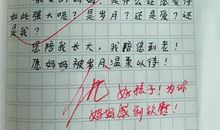 如此强大呢？是岁月？还是爱？还
是我？
您陪我长大，我陪您到老！
愿妈妈被岁月温柔以待！
好孩子！为你
妈妈感到欣慰！